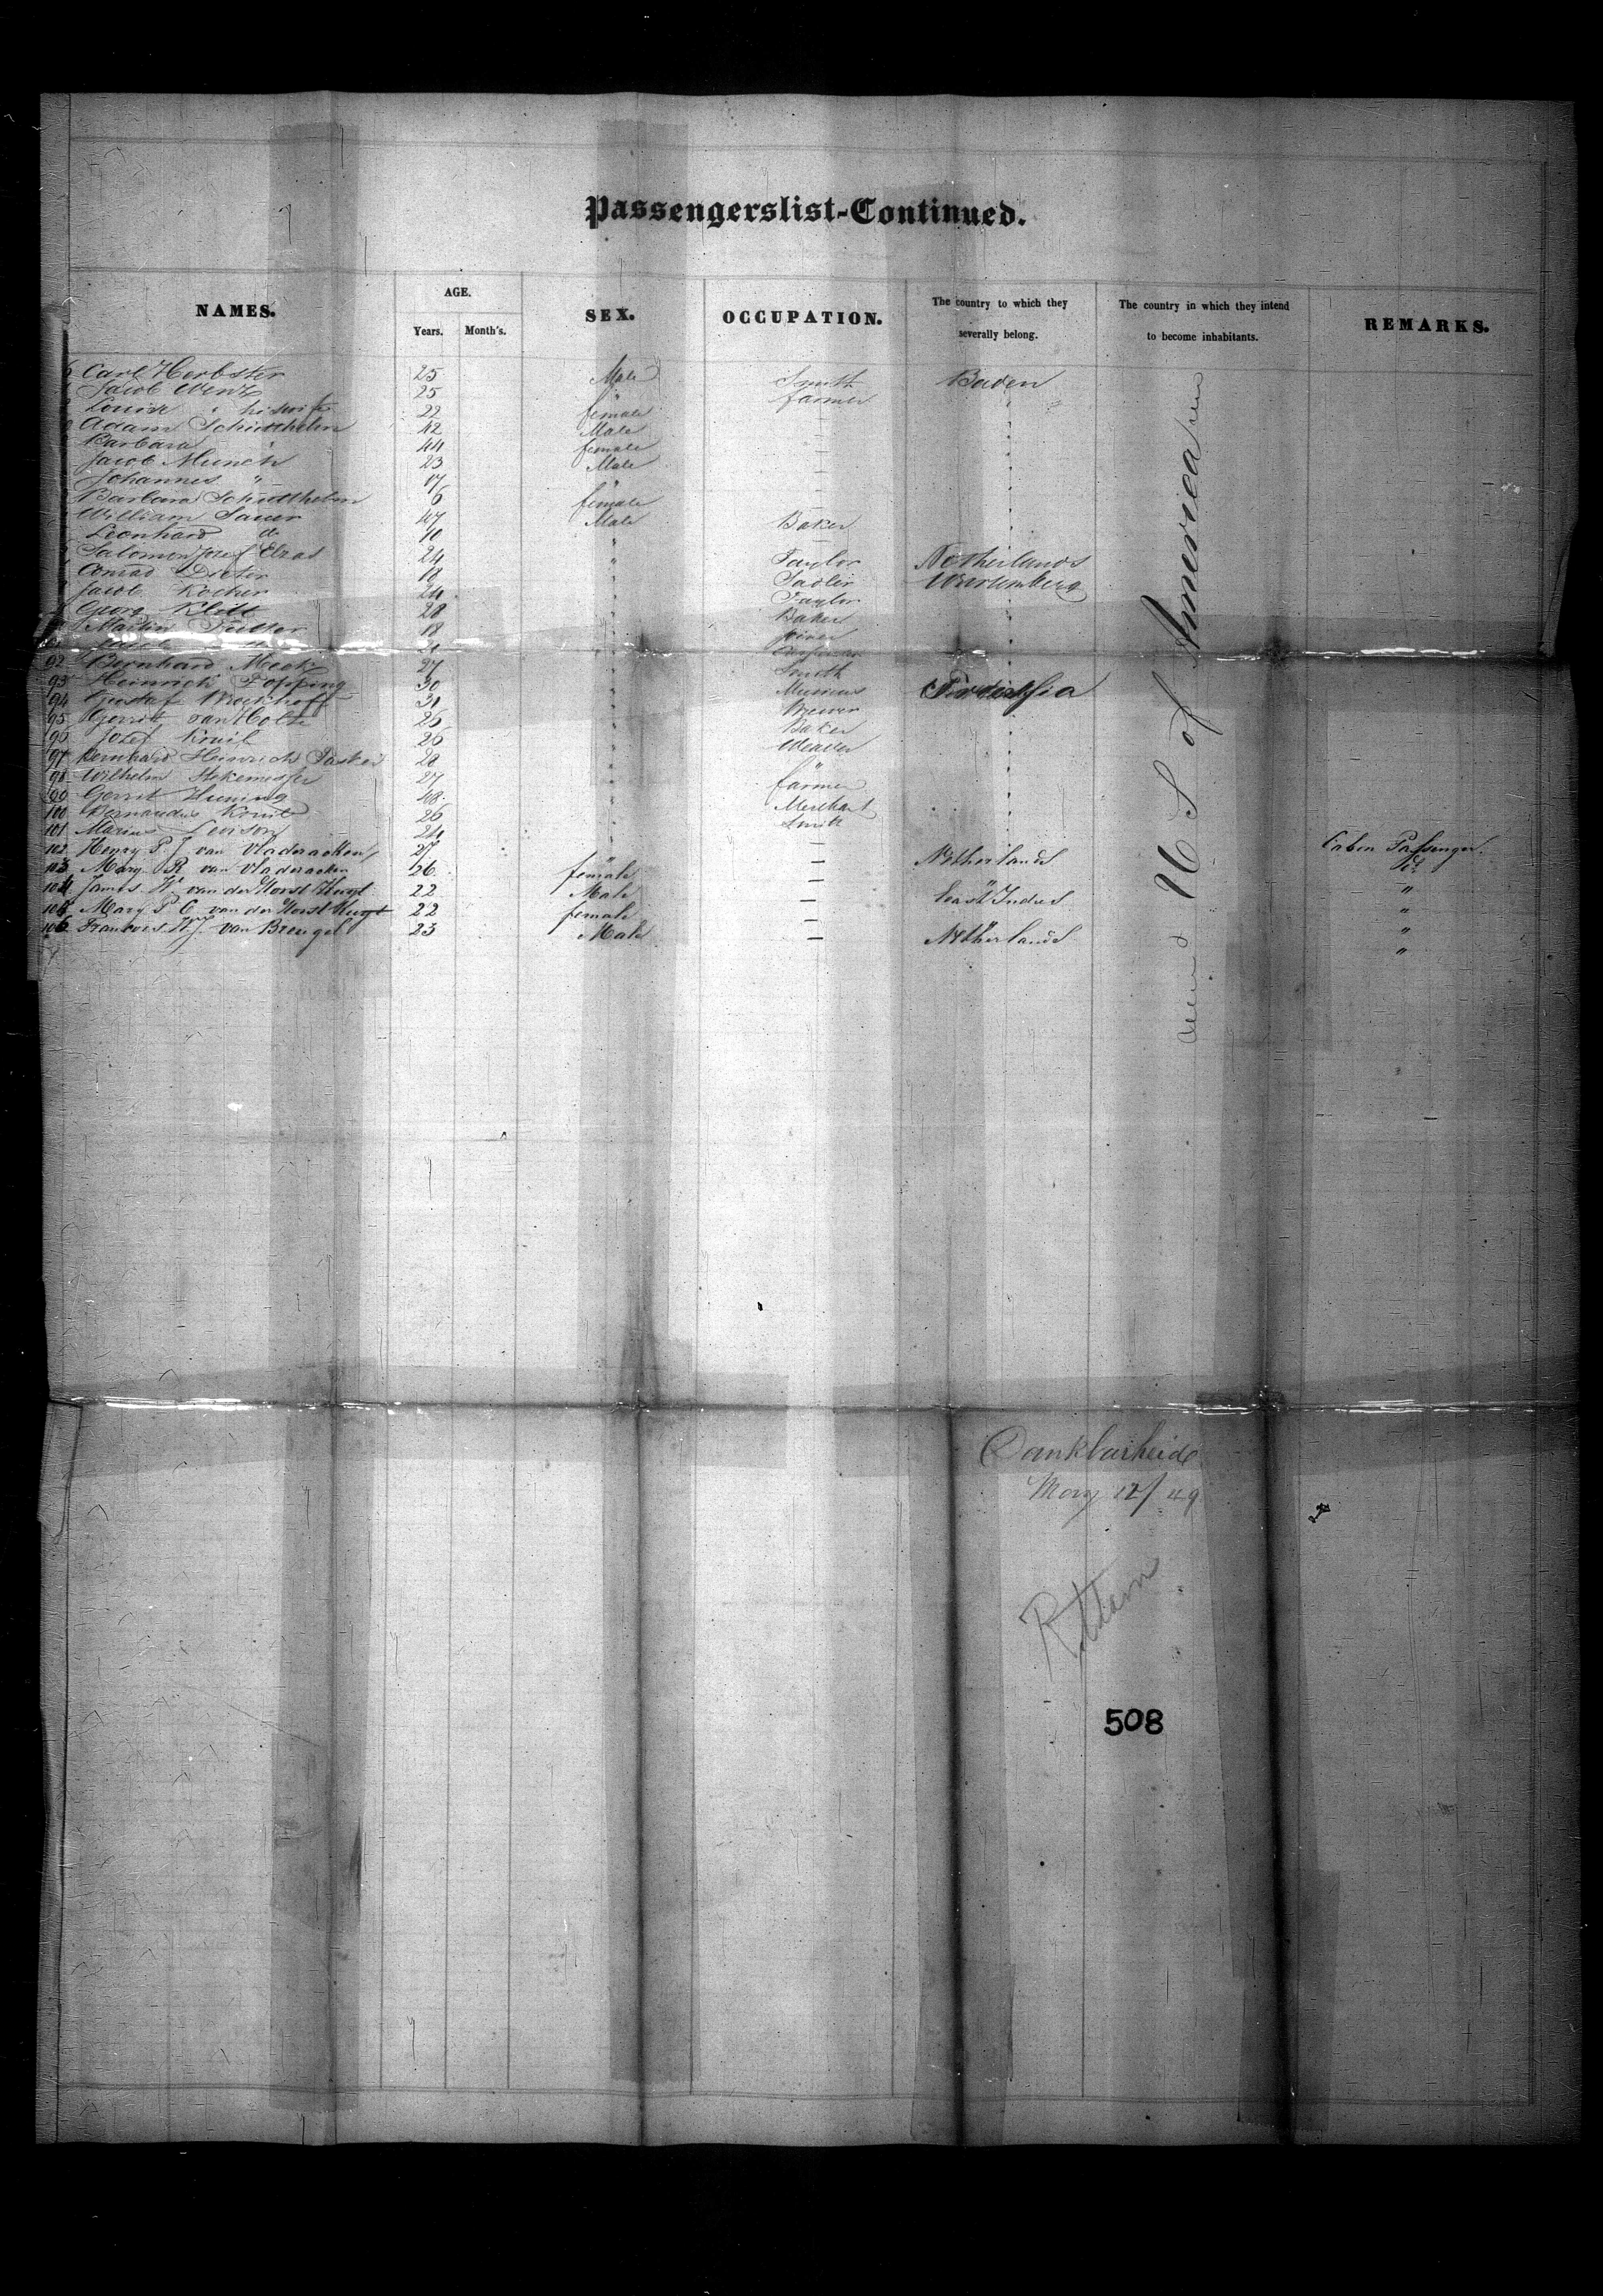 Passengerslist-Continued.
NAMES. AGE. SEX. OCCUPATION. The country to which they severally belong. The country in which they intend to become inhabitants. REMARKS.
Years. Month's.
Carl Herbster 25 Male Smith Baden
Jacob Wentz 25 " farmer "
Louise " his wife 22 female "
Adam Schutthelm 42 Male — "
Barbara " 44 female — "
Jacob Munch 23 Male — "
Johannes " 17 " — "
Barbara Schutthelm 6 female — "
William Sauer 47 Male Baker "
Leonhard do 40 " "
Salomon Josef Elzas 24 " Taylor Netherlands
Conrad Dieter 18 " Sadler Wurtemberg
Jacob Kocher 24 " Taylor "
Georg Klett 28 " Baker "
Martin 18 " Joiner "
21 "
92 Bernhard Mock 27 " Smith "
93 Heinrich Topping 30 "
94 Gustaf Brockhoff 31 " Brewer "
95 Gerrit van Holte 25 " Baker "
96 Josef Kruil 26 " Weaver "
97 Bernhard Heinrich 28 " " "
98 Wilhelm 27 " farmer "
99 Gerrit Huning 48 " Merchant "
100 Bernardus Kruil 26 " Smith "
101 Marius Levison 24 " — "
102 Henry P. J. van Vladeracken 27 " — Netherlands Cabin Passenger.
103 Mary R van Vladeracken 26 female — " "
104 James H. van der Horst 22 Male — East Indies "
105 Mary P C van der Horst 22 female — " "
106 Francois H J. van Breugel 23 Male — Netherlands "
U S of America
Dankbarheid
May 12/49
Rttdam
508